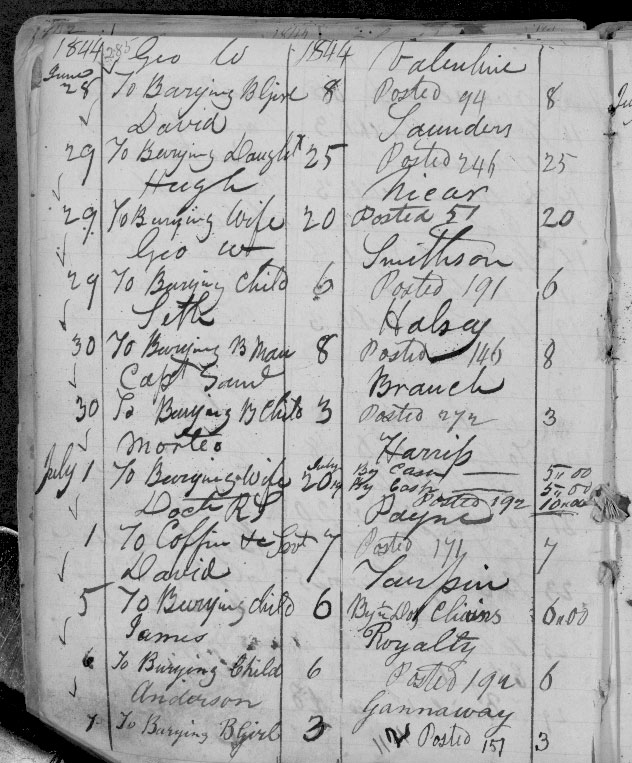 1844 285 Geo W 1844 Valentine
June
28 To Burying B Girl 8 Posted 94 8
David Saunders
29 To Burying Daught 25 Posted 246 25
Hugh Nicar
29 To Burying Wife 20 Posted 51 20
Geo W Smithson
29 To Burying Child 6 Posted 191 6
Seth Halsey
30 To Burying B Man 8 Posted 146 8
Capt Saml Branch
30 To Burying B Child 3 Posted 272 3
Harriss
July 1 To Burying Wife July 20 By Cash 5,,00
By Cash 5,,00
Posted 192 10,,00
Doctr R S Payne
1 To Coffin 7 Posted 171 7
David Turpin
5 To Burying Child 6 By Chairs 6,,00
James Royalty
6 To Burying Child 6 Posted 192 6
Anderson Gannaway
7 To Burying B Girl 3 Posted 157 3